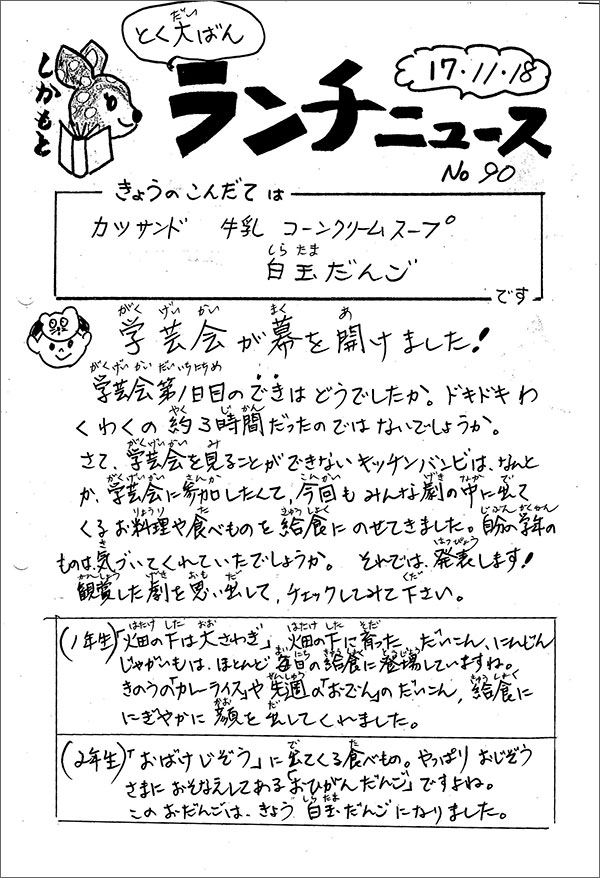 とく大ばん
しかもと
ランチニュース
17.11.18
No 90
きょうのこんだては
カツサンド 牛乳 コーンクリームスープ
白玉だんご
です
学芸会が幕を開けました!
学芸会第1日目のできはどうでしたか。ドキドキわ
くわくの約3時間だったのではないでしょうか。
さて、学芸会を見ることができないキッチンバンビは、なんと
か、学芸会に参加したくて、今回もみんな劇の中に出て
くるお料理や食べものを給食にのせてきました。自分の学年の
ものは、気づいてくれていたでしょうか。 それでは、発表します!
観賞した劇を思い出して、チェックしてみて下さい。
(1年生)「畑の下は大さわぎ」 畑の下に育った、だいこん、にんじん
じゃがいもは、ほとんど毎日の給食に登場していますね。
きのうの「カレーライス」や先週の「おでん」のだいこん、給食に
にぎやかに顔を出してくれました。
(2年生)「おばけじぞう」に出てくる食べもの。やっぱりおじぞう
さまにおそなえしてある「おひがんだんご」ですよね。
このおだんごは、きょう白玉だんごになりました。